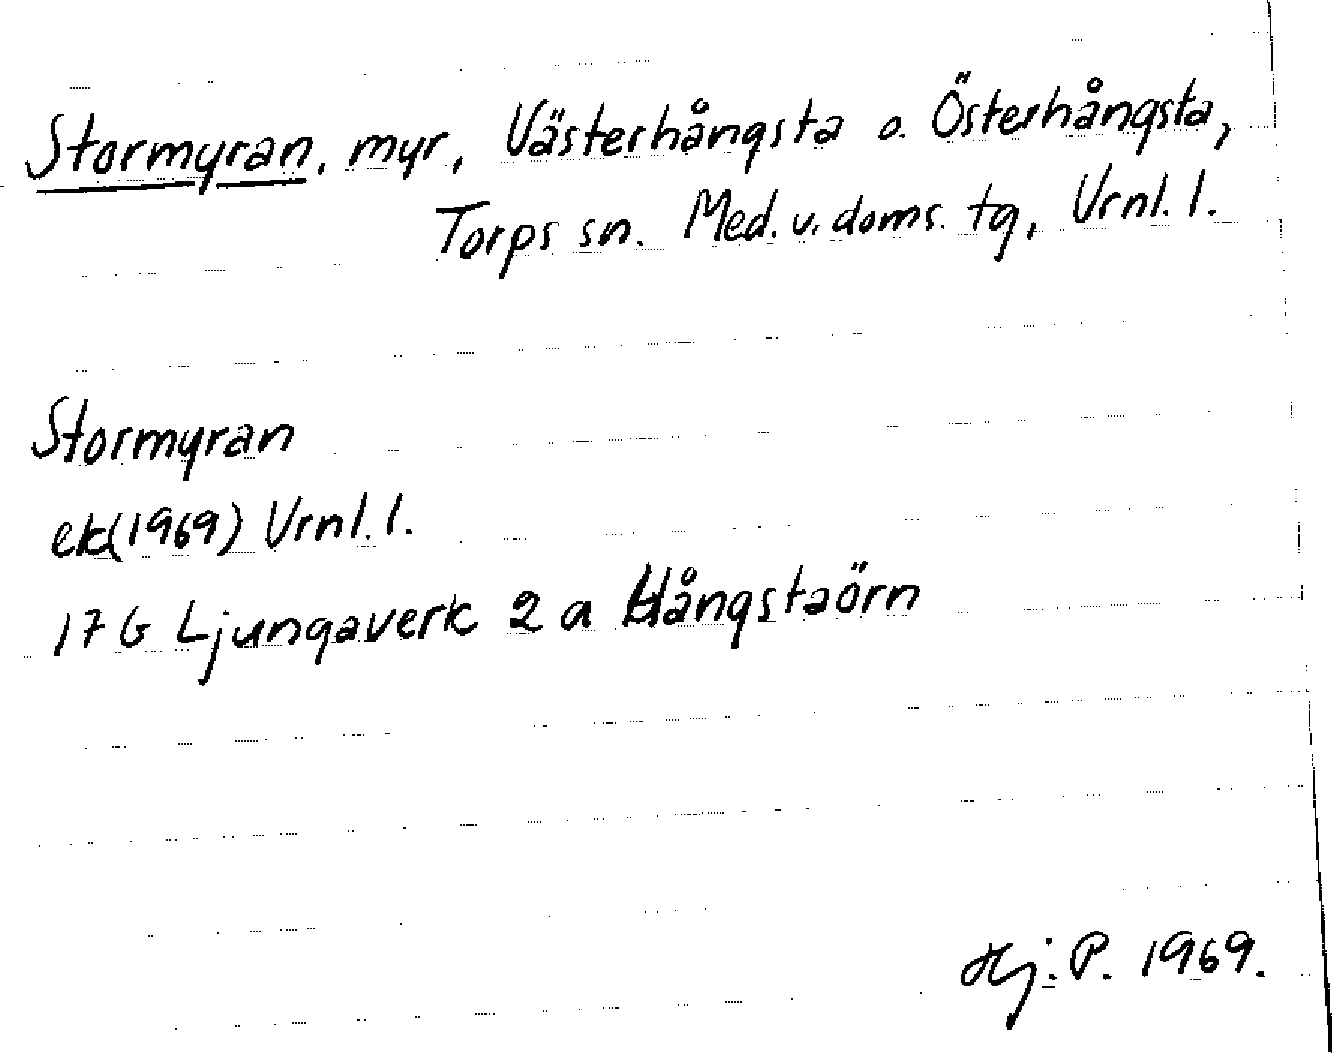 Stormyran, myr, Västerhångsta o. Österhångsta,
Torps sn. Med. v. doms. tg, Vrnl. l.
Stormyran
ek(1969) Vrnl. l.
17 G Ljungaverk 2 a Hångstaörn
Hj. P. 1969.